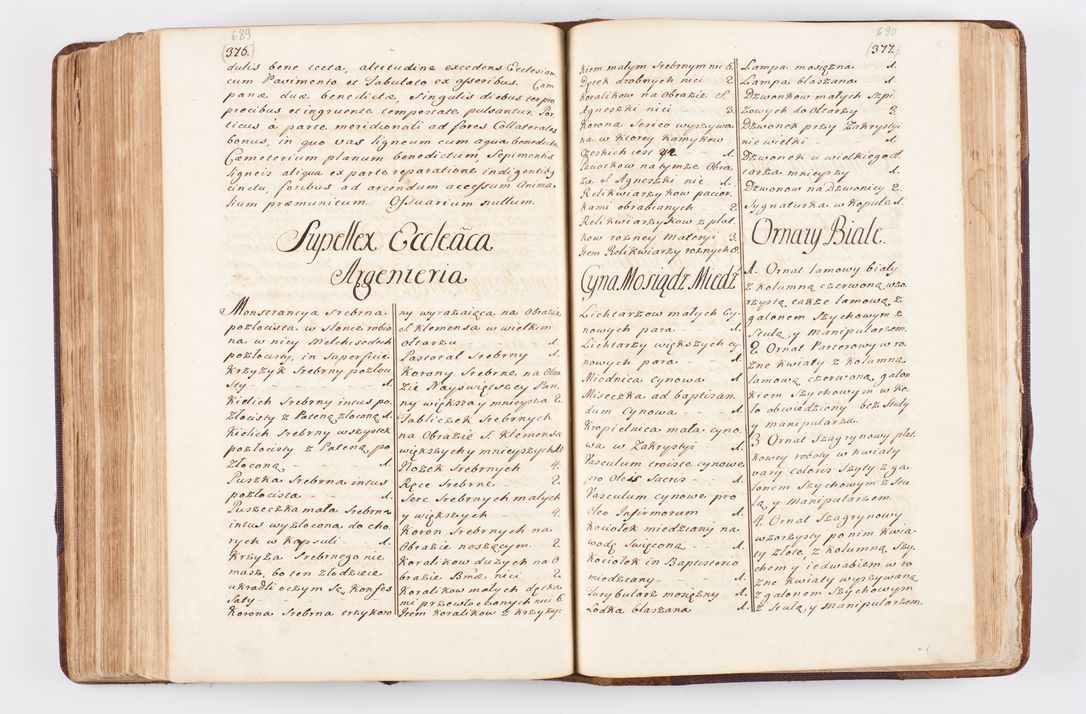 689
376.
dulis bene tecta, altitudine excedens Ecclesiam
cum Pavimento et Tabulato ex asseribus. Cam
panæ duæ benedictæ, singulis diebus ter pro
precibus et ingruente tempestate pulsantur. Por
ticus à parte meridionali ad fores Collaterales
bonus, in quo vas ligneum cum aqua benedicta
Cæmeterium planum benedictum Sepimentis
ligneis aliqua ex parte reparatione indigentibus
cinctu, foribus ad arcendum accessum Anima
lium præmunitum. Ossuarium nullum.
Supellex Eccleãca
Argenteria
Monstrancya srebrna
pozłocista w słonce robio
na w nicy Melchisedech
pozłocisty, in superficie
krzyżyk srebrny pozłoci
sty - - - 1.
Kielich srebrny intus po
złocisty z Pateną złoconą 1.
Kielich srebrny wszystek
pozłocisty z Pateną po
złoconą - - - 1.
Puszka srebrna intus
pozłocista - - - 1.
Puszeczka mała srebrna
intus wyzłocona do cho
rych w Kapsuli - - 1.
Krzyża srebrnego nie
masz, bo ten złodzieie
ukradli oczym są, Konfes
saty
Korona srebrna trzykoro
ny wyrażaiąca na Obrazie
S. Klemensa w wielkim
ołtarzu - - - 1.
Pastorał srebrny - 1.
Korony srebrne na Obra
zie Nayswiętszey Pan
ny większa y mnieysza 2.
Tabliczek srebrnych
na Obrazie S. Klemensa
większych y mnieyszych 10
Nożek srebrnych 4.
Ręce srebrne - 2.
Serc srebrnych małych
y większych - - 4.
Koron srebrnych na
Obrazie noszącym. 2.
Koralikow dużych na O
brazie Bmæ. nici 2.
Koralikow małych dętka
mi przewłoczonych nici 6
Item Koralikow z krzyzyp
690
377.
kiem małym srebrnym nic 6.
Dętek drobnych nici 2.
Koralikow na Obrazie S.
Agneszki nici 3.
Korona Serico wyszywa
na w ktorey kamykow
czeskich iest 42 1.
Paciorkow na tymże Obra
zie S. Agneszki nic 1.
Relikwiarzykow pacior
kami obrabianych 2.
Relikwiarzykow z płat
kow rozney materyi 3.
Item Relikwiarzy rożnych 8.
Cyna Mosiądz Miedź
Lichtarzow małych Cy
nowych para - 1.
Lichtarzy większych cy
nowych para - - 1.
Miednica cynowa 1.
Miseczka ad baptisan
dum Cynowa - - 1.
Kropielnica mała cyno
wa w Zakrystyi 1.
Vasculum troiste cynowe
pro Oleis Sacris - 1.
Vasculum cynowe pro
Oleo Infirmorum 1.
Kociołek miedziany na
wodę swięconą - - 1.
Kociołek in Baptisterio
miedziany - - - 1.
Turybularz mosiężny 1.
Łodka blaszana - 1.
Lampa mosiężna 1.
Lampa blaszana 1.
Dzwonkow małych Szpi
żowych do Ołtarzy 3.
Dzwonek przy Zakrystyi
nie wielki - - 1.
Dzwonek u wielkiego oł
tarza mnieyszy 1.
Dzwonow na Dzwonicy 2.
Sygnaturka w kopule 1.
Ornaty Białe.
1. Ornat lamowy biały
z kolumną czerwoną wzo
rzystą także lamową, z
galonem szychowym z
stułą, y manipularzem.
2. Ornat Parterowy w ro
zne kwiaty z kolumną
lamową, czerwoną, galon
kiem szychowym w ko
ło obwiedziony bez stuły
y manipularza.
3 Ornat Szagrynowy płat
kowey roboty w kwiaty
varÿ coloris szyty z ga
lonem szychowym z stu
łą, y manipularzem.
4. Ornat Szagrynowy
wzorzysty po nim kwia
ty złote, z kolumną szy
chem y iedwabiem w ro
zne kwiaty wyszywaną,
z galonem szychowym
z stułą, y manipularzem.